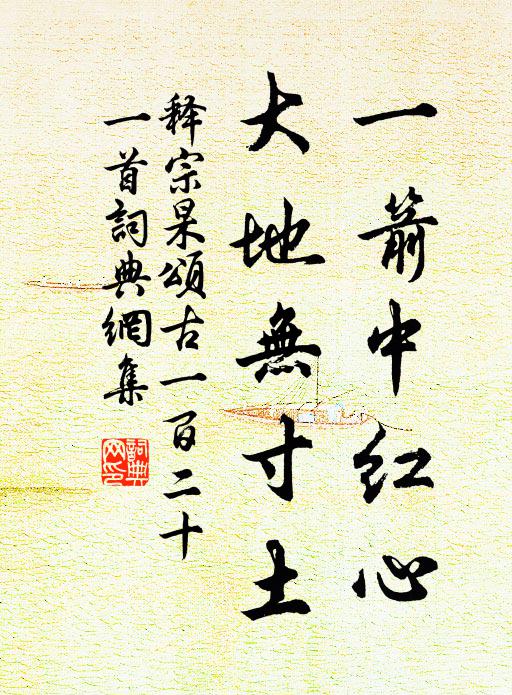 一箭中紅心
大地無寸土
释宗杲頌古一百二十
一首詞典網集
詞典网印